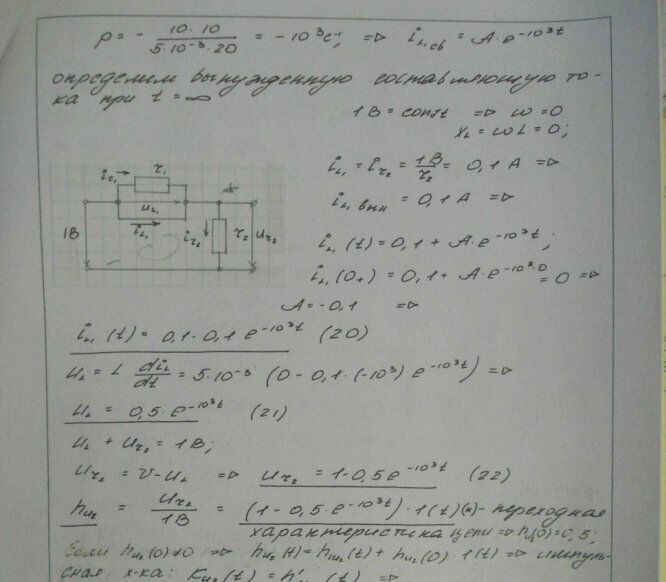 p = - 10·10 / 5·10⁻³·20 = - 10³ c⁻¹, => i_L1 св = A·e^-10³t
определим вынужденную составляющую то-
ка при t = ∞
1В = const => ω = 0
X_L = ωL = 0;
i_L1 = i_r2 = 1В / r_2 = 0,1 А =>
i_L1 вын = 0,1 А =>
i_r1 r_1
u_L1
i_L1
1В i_r2 r_2 u_r2
i_L1 (t) = 0,1 + A·e^-10³t ;
i_L1 (0+) = 0,1 + A·e^-10³·0 = 0 =>
A = -0,1 =>
i_L1 (t) = 0,1 - 0,1 e^-10³t (20)
u_L = L di_L/dt = 5·10⁻³ (0 - 0,1·(-10³) e^-10³t) =>
u_L = 0,5·e^-10³t (21)
u_L + u_r2 = 1В;
u_r2 = U - u_L => u_r2 = 1 - 0,5e^-10³t (22)
h_u2 = u_r2 / 1В = (1 - 0,5e^-10³t)·1(t) - переходная
характеристика цепи => h_u(0) = 0,5;
Если h_u2 (0) ≠ 0 => h_u2 (t) = h_u2 (t) + h_u2 (0)·1(t) => импуль-
сная х-ка: K_u2 (t) = h'_u2 (t) =>